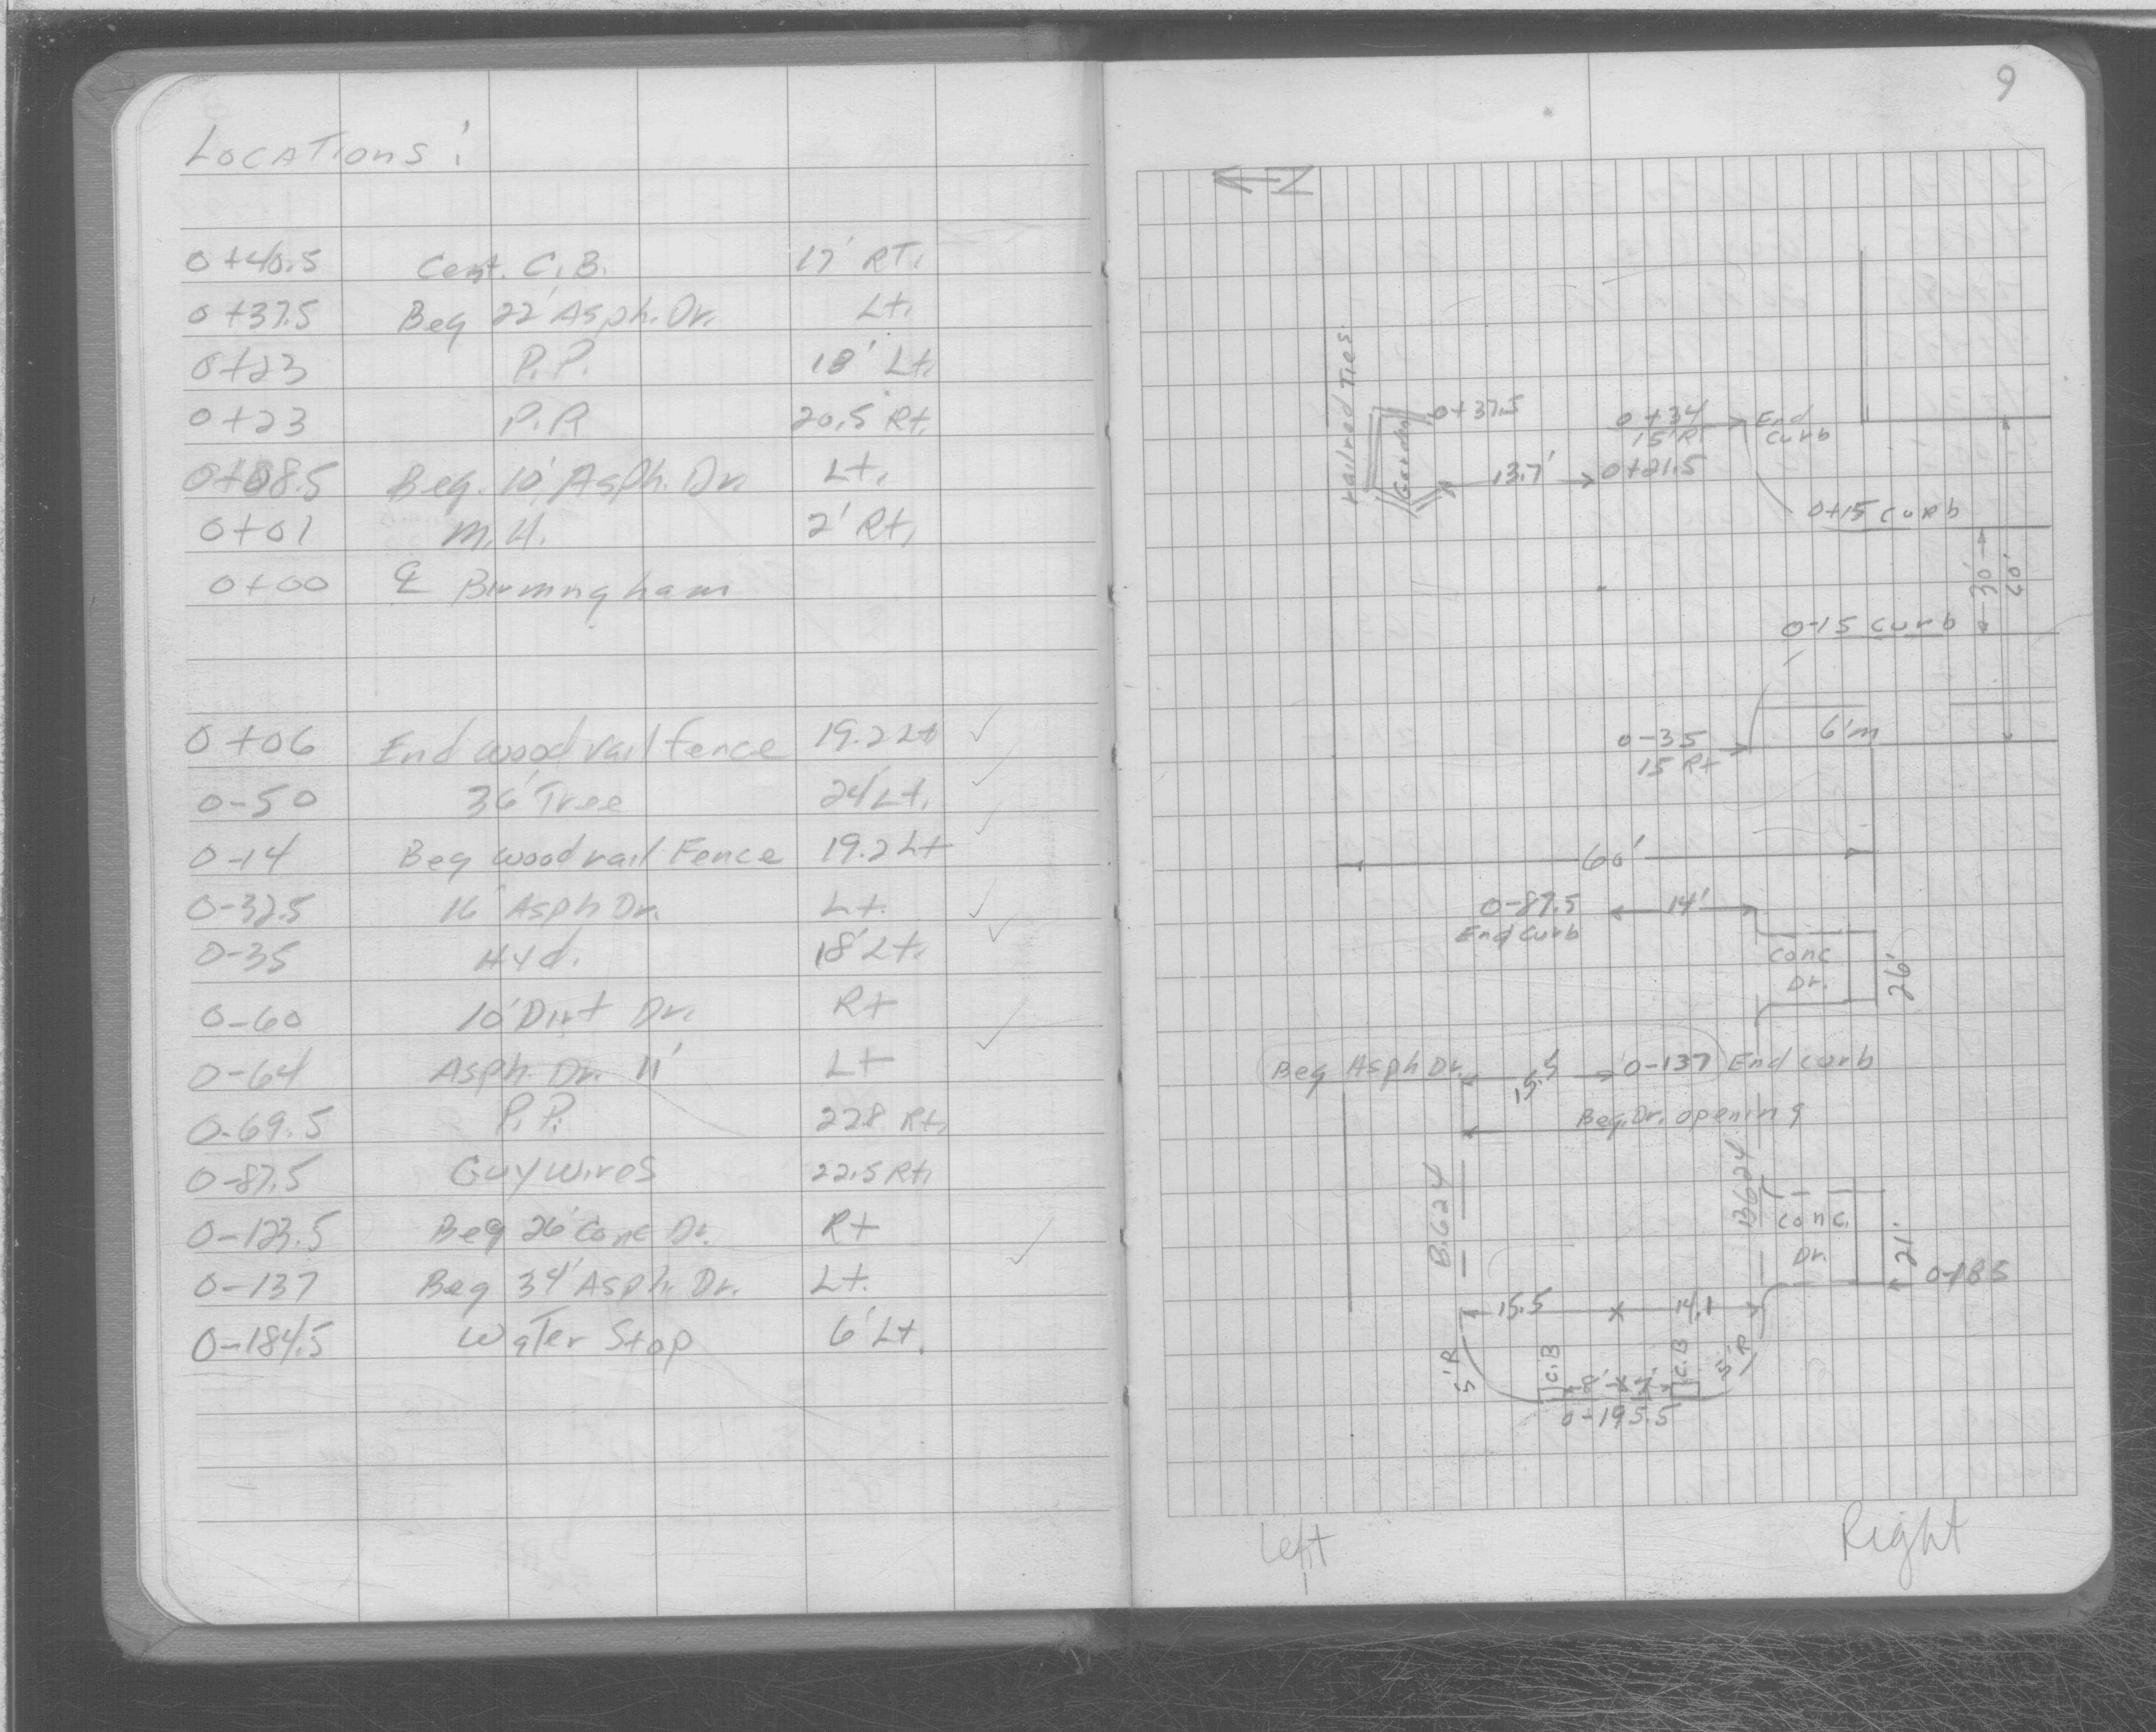 Locations:
0+40.5 Cent. C.B. 17' RT.
0+37.5 Beg 22' Asph. Dr. Lt.
0+23 P.P. 18' Lt.
0+23 P.P. 20.5 Rt.
0+08.5 Beg. 10' Asph. Dr. Lt.
0+01 M.H. 2' Rt.
0+00 ℄ Birmingham
0+06 End wood rail fence 19.2 Lt ✓
0-50 36" Tree 24' Lt. ✓
0-14 Beg wood rail Fence 19.2 Lt ✓
0-32.5 16' Asph Dr. Lt. ✓
0-35 Hyd. 18' Lt. ✓
0-60 10' Dirt Dr. Rt
0-64 Asph. Dr. 11' Lt ✓
0-69.5 P.P. 22.8 Rt.
0-87.5 Guy wires 22.5 Rt.
0-123.5 Beg 26' Conc Dr. Rt
0-137 Beg 34' Asph. Dr. Lt. ✓
0-184.5 Water Stop 6' Lt.
9
N
railroad Ties
Garden
0+37.5
0+34
15' R
End
Curb
13.7'
0+21.5
0+15 curb
30'
60'
0-15 curb
0-35
15 Rt
6'm
60'
0-87.5
End Curb
14'
Conc
Dr.
26'
Beg Asph Dr.
15.5
0-137 End curb
Beg. Dr. opening
B624
B624
Conc.
Dr.
21'
0-185
15.5
14.1
5'R
C.B
C.B
5'R
8'
7'
0-195.5
Left
Right